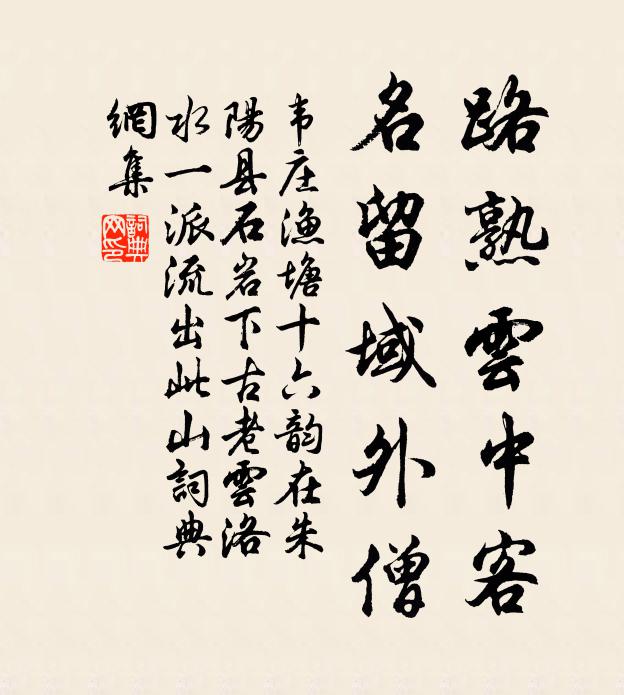 路熟雲中客
名留域外僧
韦庄漁塘十六韵在朱
陽县石岩下古老雲洛
水一派流出此山詞典
網集
詞典
网印